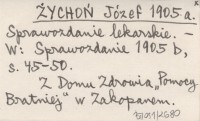 ŻYCHOŃ Józef 1905 a.
Sprawozdanie lekarskie. –
W: Sprawozdanie 1905 b,
s. 45–50.
Z Domu Zdrowia „Pomocy
Bratniej" w Zakopanem.